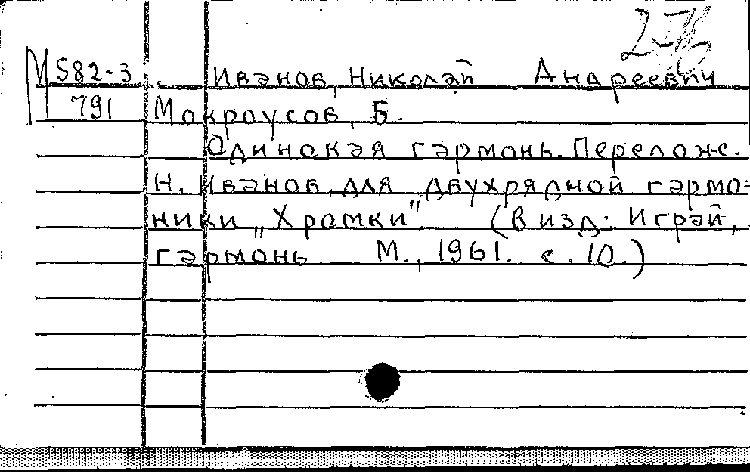 2-76
М582-3 Иванов, Николай Андреевич
791 Мокроусов, Б.
Одинокая гармонь. Перелож.
Н. Иванов для двухрядной гармо-
ники „Хромки" (В изд: Играй,
гармонь М., 1961. с. 10.)